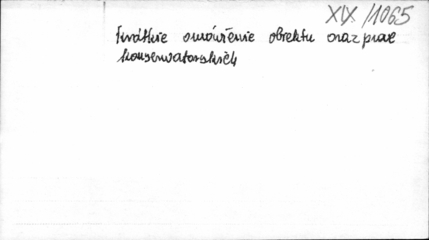 XIX/1065
krótkie omówienie obiektu oraz prac
konserwatorskich